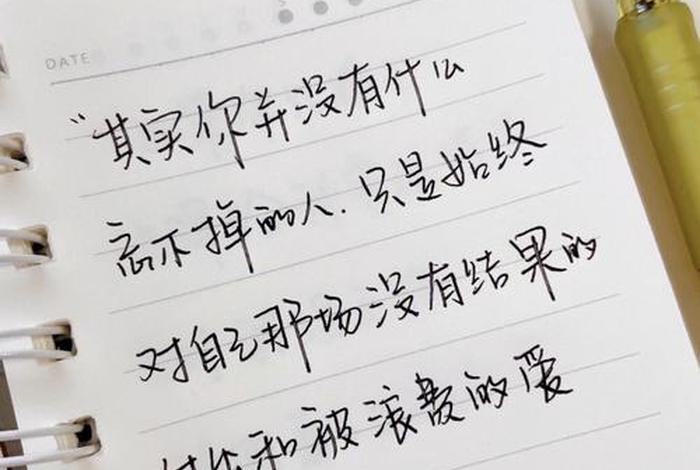 DATE
“其实你并没有什么
忘不掉的人.只是始终
对自己那场没有结果的
付出和被浪费的爱